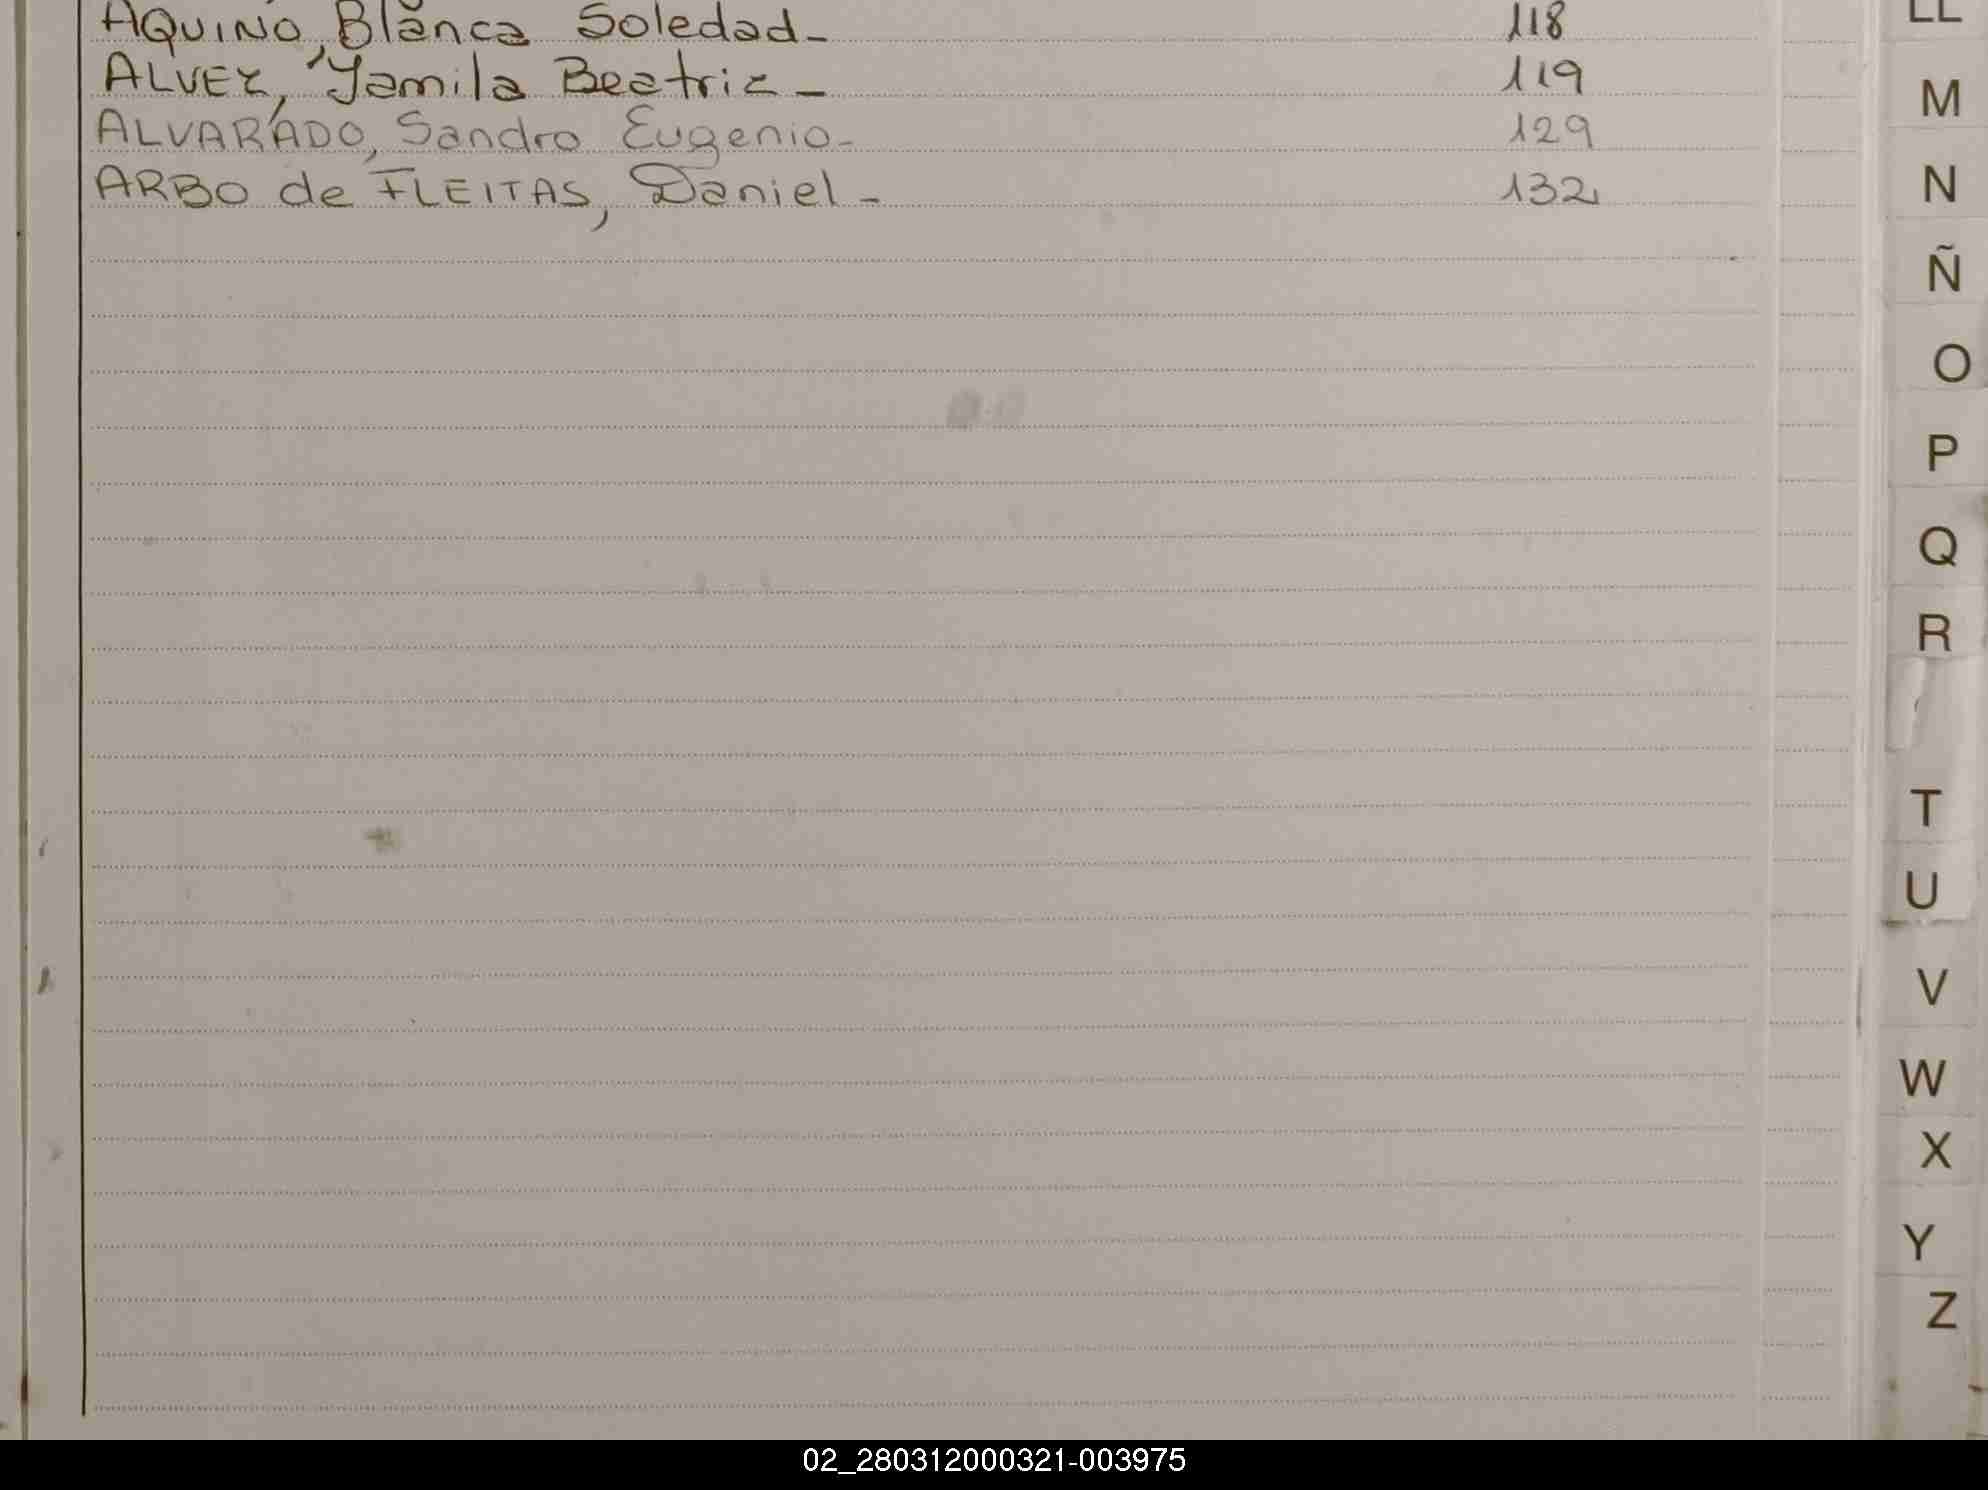 AQUINO, Blanca Soledad - 118
ALVEZ, Yamila Beatriz - 119
ALVARADO, Sandro Eugenio - 129
ARBO de FLEITAS, Daniel - 132
LL
M
N
Ñ
O
P
Q
R
T
U
V
W
X
Y
Z
02_280312000321-003975